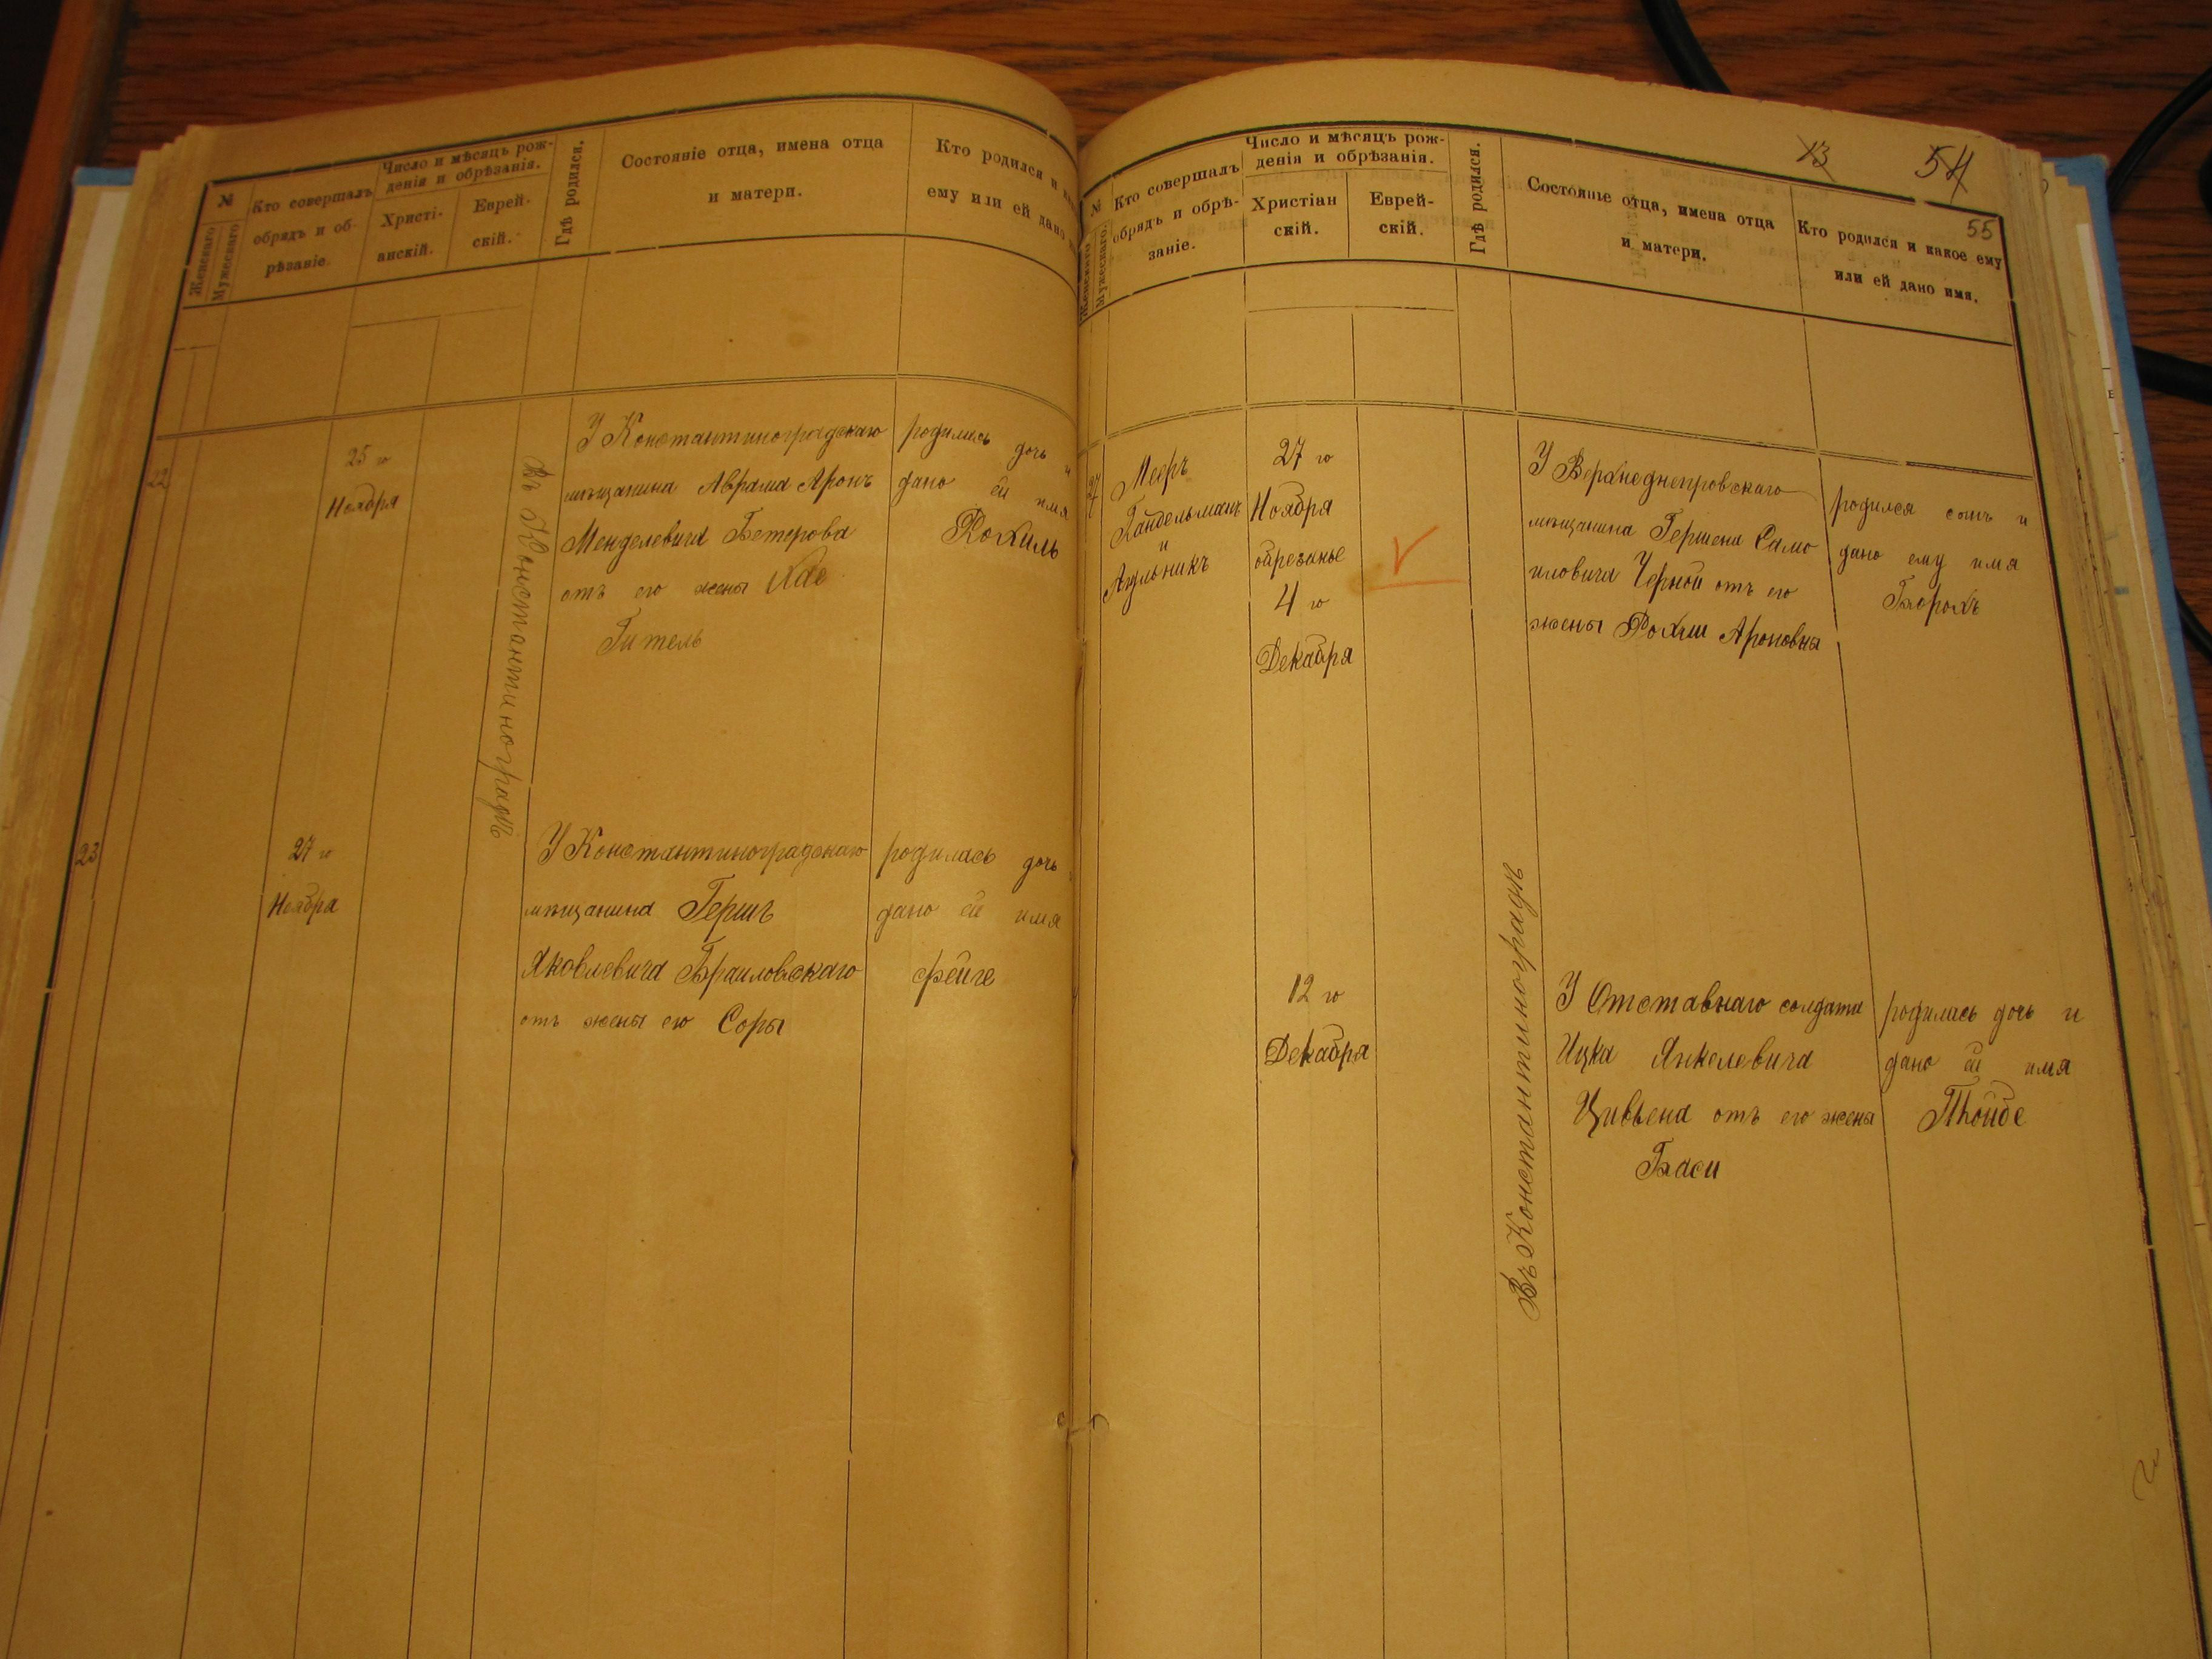 №
Женскаго
Мужескаго
Кто совершалъ
обрядъ и об-
рѣзаніе.
Число и мѣсяцъ рож-
денія и обрѣзанія.
Христі-
анскій.
Еврей-
скій.
Гдѣ родился.
Состояніе отца, имена отца
и матери.
Кто родился и
ему или ей дано
22
25 го
Ноября
Въ Константиноградѣ
У Константиноградскаго
мѣщанина Абрама Аронъ
Менделевича Бетерова
отъ его жены Хае
Гитель
родилась дочь и
дано ей имя
Рохиль
23
27 го
Ноября
У Константиноградскаго
мѣщанина Гершъ
Яковлевича Браиловскаго
отъ жены его Соры
родилась дочь
дано ей имя
Фейге
13
54
55
№
Женскаго
Мужескаго.
Кто совершалъ
обрядъ и обрѣ-
заніе.
Число и мѣсяцъ рож-
денія и обрѣзанія.
Христіан
скій.
Еврей-
скій.
Гдѣ родился.
Состояніе отца, имена отца
и матери.
Кто родился и какое ему
или ей дано имя.
27
Мееръ
Гандельманъ
и
27 го
Ноября
обрезанье
4 го
Декабря
У Верхнеднепровскаго
мѣщанина Гершена Само
иловича Черной отъ его
жены Рохли Ароновна
родился сынъ и
дано ему имя
Борохъ
12 го
Декабря
Въ Константиноградѣ
У Отставнаго солдата
Ицка Янкелевича
Цивьена отъ его жены
Баси
родилась дочь и
дано ей имя